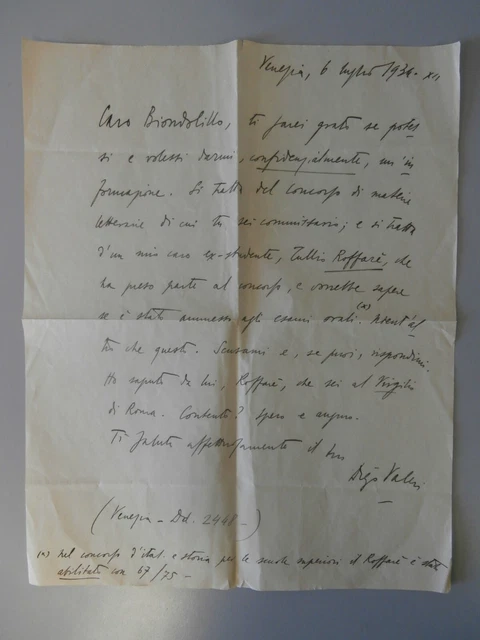 Venezia, 6 luglio 1934 - XII
Caro Biondolillo, ti sarei grato se potes
si e volessi darmi, confidenzialmente, un'in
formazione. Si tratta del concorso di materie
letterarie di cui tu sei commissario; e si tratta
d'un mio caro ex-studente, Tullio Roffarè, che
ha preso parte al concorso, e vorrebbe sapere
se è stato ammesso agli esami orali. (*) Nient'al
tro che questo. Scusami e, se puoi, rispondimi.
Ho saputo da lui, Roffarè, che sei al Virgilio
di Roma. Contento? Spero e auguro.
Ti saluta affettuosamente il tuo
Diego Valeri
(Venezia - Dd. 2448 -)
(*) Nel concorso d'ital. e storia per le scuole superiori il Roffarè è stato
abilitato con 67/75 -